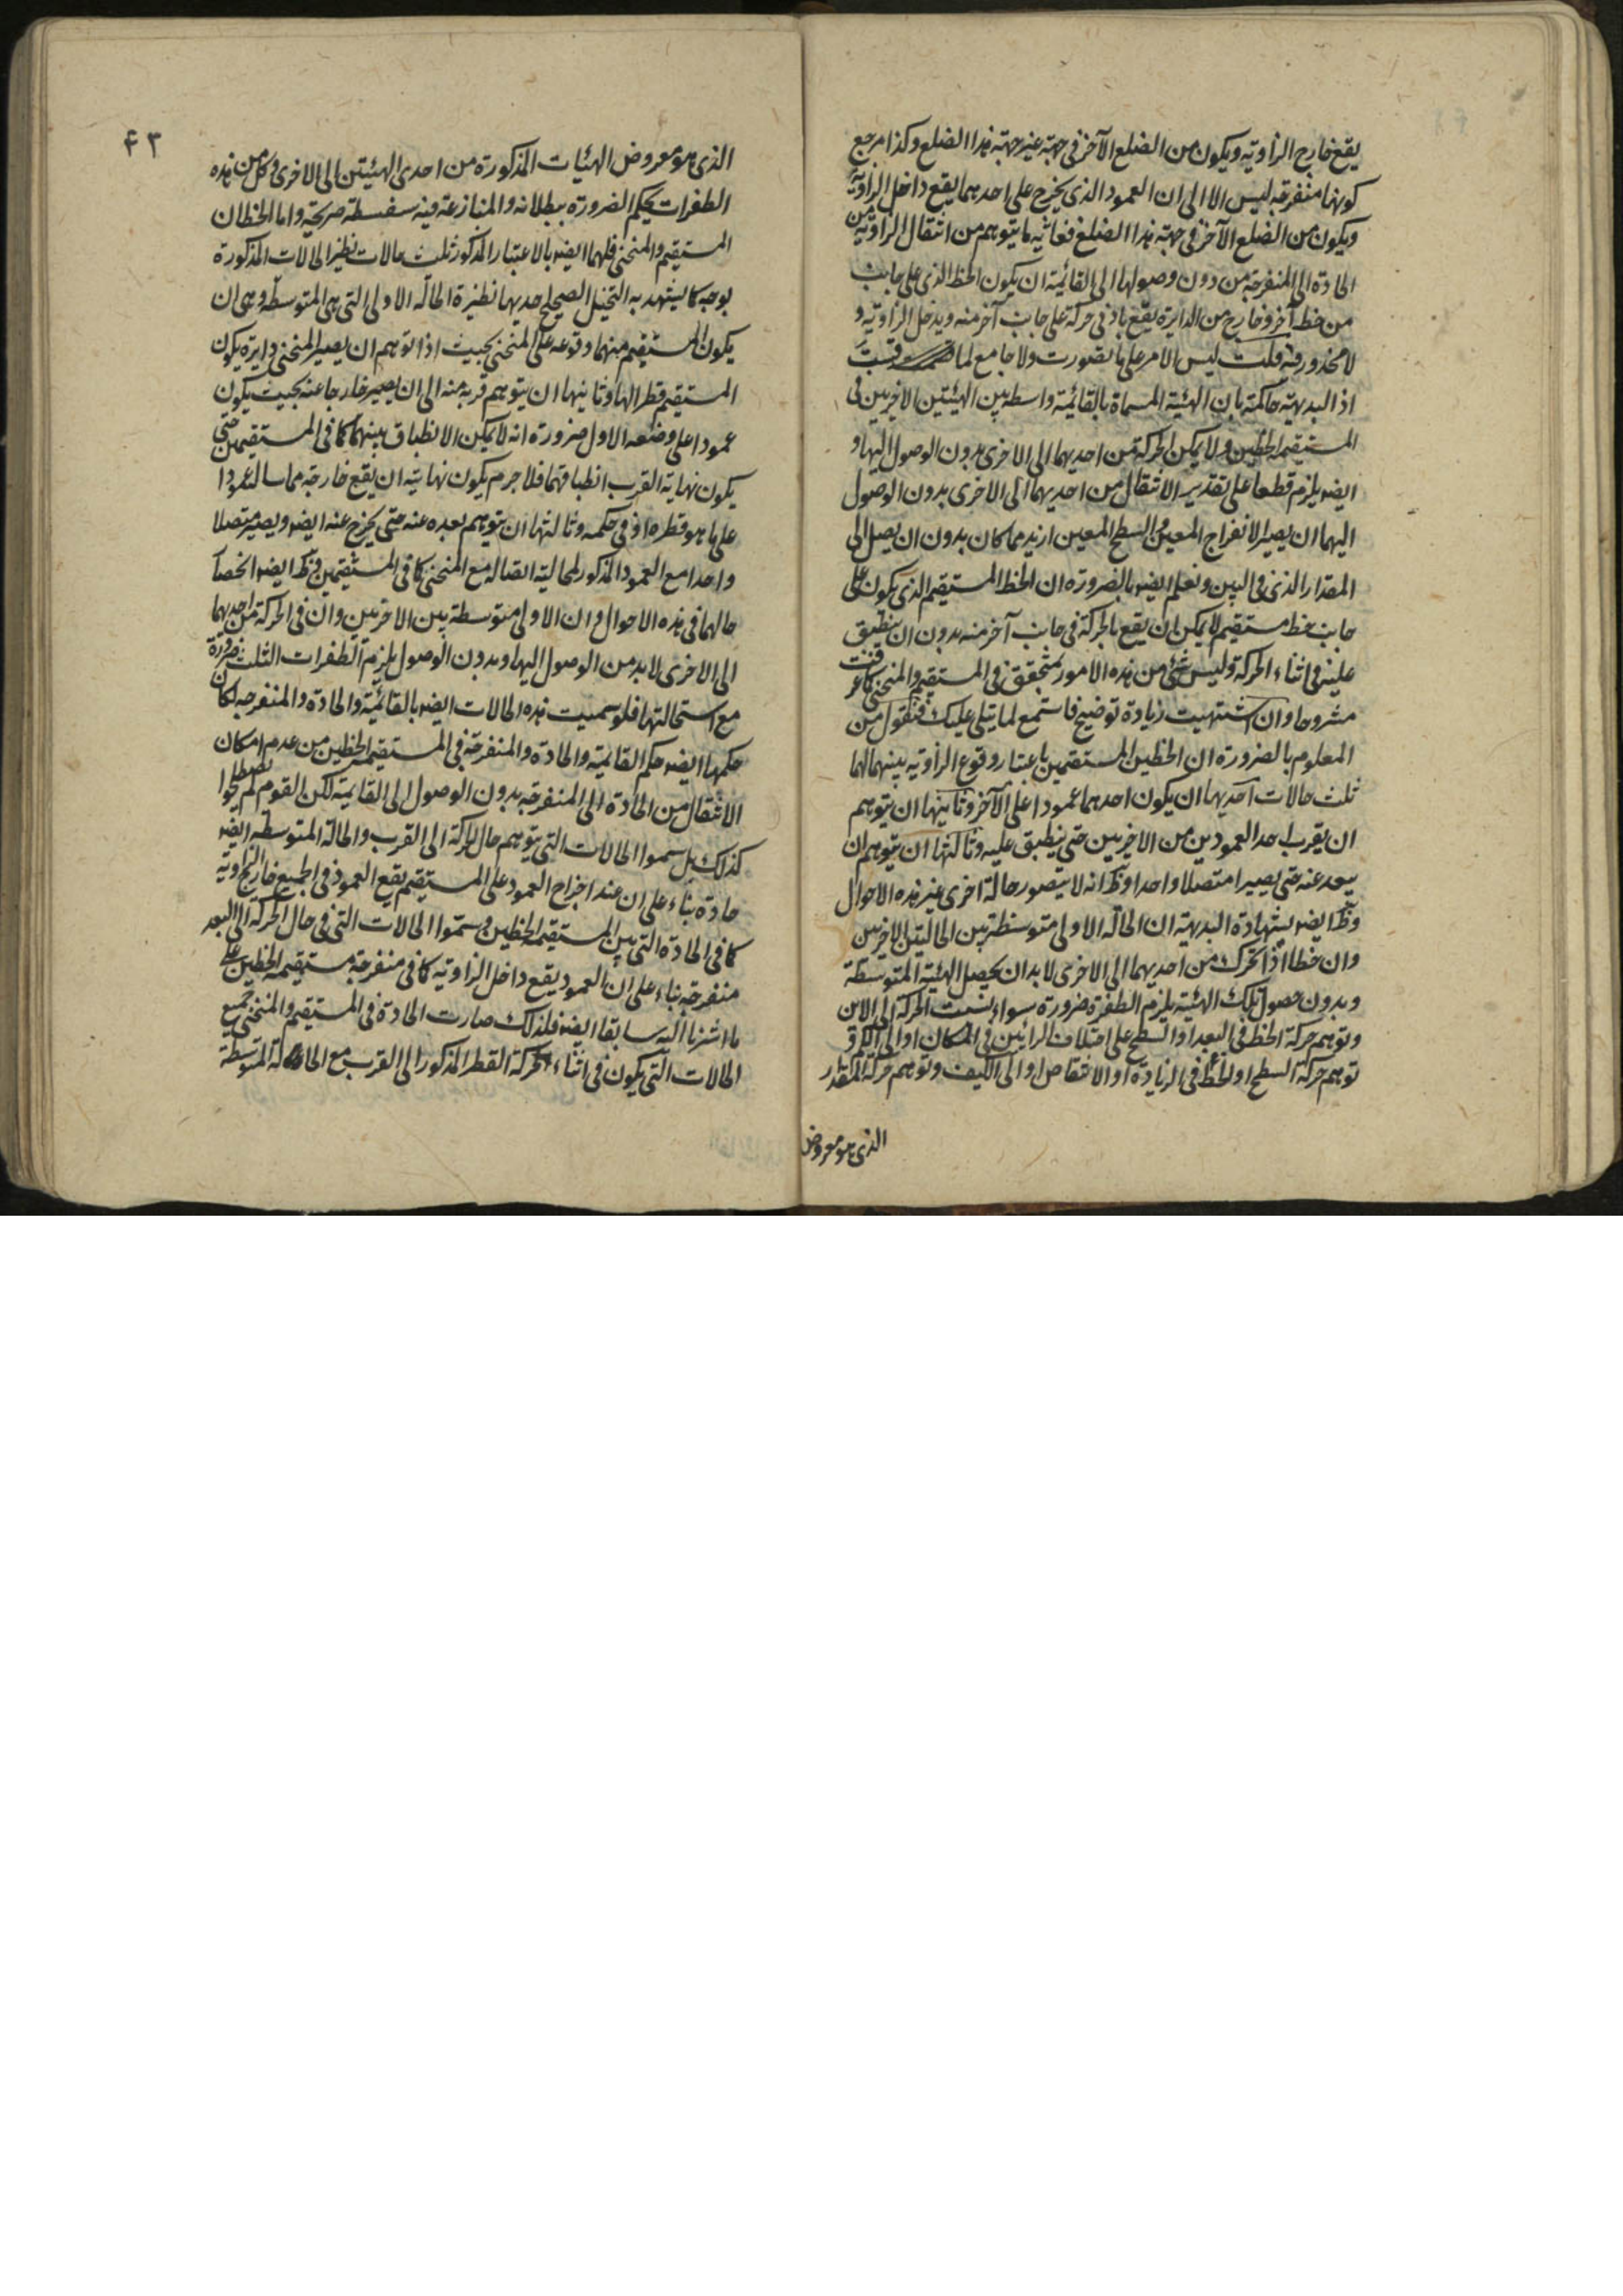 يقع خارج الزاوية ويكون من الضلع الآخر في جهة غير جهة هذا الضلع وكذا مرجع
كونها منفرجة ليس الا الى ان العمود الذي يخرج على احدهما يقع داخل الزاوية
ويكون من الضلع الآخر في جهة هذا الضلع فغاية ما يتوهم من انتقال الزاوية من
الحادة الى المنفرجة من دون وصولها الى القائمة ان يكون الخط الذي على جانب
من خط آخر وخارج من الدايرة يقع باذنى حركة على جانب آخر منه ويدخل الزاوية و
لا محذور فيه قلت ليس الامر على ما تصورت ولا جامع لما
اذ البديهة حاكمة بان الهيئة المسماة بالقائمة واسطة بين الهيئتين الاخريين في
المستقيمة الخطين ولا يمكن الحركة من احديهما الى الاخرى بدون الوصول اليها و
ايضا يلزم قطعا على تقدير الانتقال من احديهما الى الاخرى بدون الوصول
اليهما ان يصير الانفراج المعين في السطح المعين ازيد مما كان بدون ان يصل الى
المقدار الذي في البين ونعلم ايضا بالضرورة ان الخط المستقيم الذي يكون على
جانب خط مستقيم لا يمكن ان يقع بالحركة في جانب آخر منه بدون ان ينطبق
عليه في اثناء الحركة وليس شئ من هذه الامور بمتحقق في المستقيم والمنحني كما عرفت
مشروحا وان اشتهيت زيادة توضيح فاستمع لما يتلى عليك فنقول من
المعلوم بالضرورة ان الخطين المستقيمين باعتبار وقوع الزاوية بينهما لهما
ثلث حالات احديها ان يكون احدهما عمودا على الآخر وثانيها ان يتوهم
ان يقرب احد العمودين من الاخريين حتى ينطبق عليه وثالثها ان يتوهم ان
يبعد عنه حتى يصيرا متصلا واحدا وظ انه لا يتصور حالة اخرى غير هذه الاحوال
وظ ايضا بشهادة البديهة ان الحالة الاولى متوسطة بين الحالتين الاخريين
وان خطا اذا تحرك من احديهما الى الاخرى لا بد ان يحصل الهيئة المتوسطة
وبدون حصول تلك الهيئة يلزم الطفرة ضرورة سواء نسبت الحركة الى الاين
وتوهم حركة الخط في البعد او السطح على اختلاف الرائين في المكان او الى الكم و
توهم حركة السطح او الخط في الزيادة او الانتقاص او الى الكيف وتوهم حركة المقدار
الذي هو معروض
٤٣
الذي هو معروض الهيئات المذكورة من احدى الهيئتين الى الاخرى وكل من هذه
الطفرات يحكم الضرورة ببطلانه والمنازعة فيه سفسطة صريحة واما الخطان
المستقيم والمنحني فلهما ايضا بالاعتبار المذكور ثلث حالات نظير الحالات المذكورة
بوجه كما يشهد به التخيل الصحيح احديها نظيرة الحالة الاولى التي هي المتوسطة وهي ان
يكون المستقيم منهما وقوعه على المنحني بحيث اذا توهم ان يصير المنحني دايرة يكون
المستقيم قطرا لها وثانيها ان يتوهم قربه منه الى ان يصير خارجا عنه بحيث يكون
عمودا على وضعه الاول ضرورة انه لا يمكن الانطباق بينهما كما في المستقيمين حتى
يكون نهاية القرب انطباقهما فلا جرم يكون نهايته ان يقع خارجه مماسا له عمودا
على ما هو قطره او في حكمه وثالثها ان يتوهم بعده عنه حتى يخرج عنه ايضا ويصير متصلا
واحدا مع العمود المذكور لمحالية اتصاله مع المنحني كما في المستقيمين فظ ايضا انحصار
حالهما في هذه الاحوال وان الاولى متوسطة بين الاخريين وان في الحركة من احديهما
الى الاخرى لا بد من الوصول اليها وبدون الوصول يلزم الطفرات الثلث ضرورة
مع استحالتها فلو سميت هذه الحالات ايضا بالقائمة والحادة والمنفرجة لكان
حكمها ايضا حكم القائمة والحادة والمنفرجة في المستقيمة الخطين من عدم امكان
الانتقال من الحادة الى المنفرجة بدون الوصول الى القائمة لكن القوم لم يصطلحوا
كذلك بل سموا الحالات التي يتوهم حال الحركة الى القرب والحالة المتوسطة ايضا
حادة بناء على ان عند اخراج العمود على المستقيم يقع العمود في الجميع خارج الزاوية
كما في الحادة التي بين المستقيمة الخطين وسموا الحالات التي في حال الحركة الى البعد
منفرجة بناء على ان العمود يقع داخل الزاوية كما في منفرجة مستقيمة الخطين على
ما اشرنا اليه سابقا ايضا فلذلك صارت الحادة في المستقيم والمنحني جميع
الحالات التي يكون في اثناء الحركة القطر المذكور الى القرب مع الحالة المتوسطة